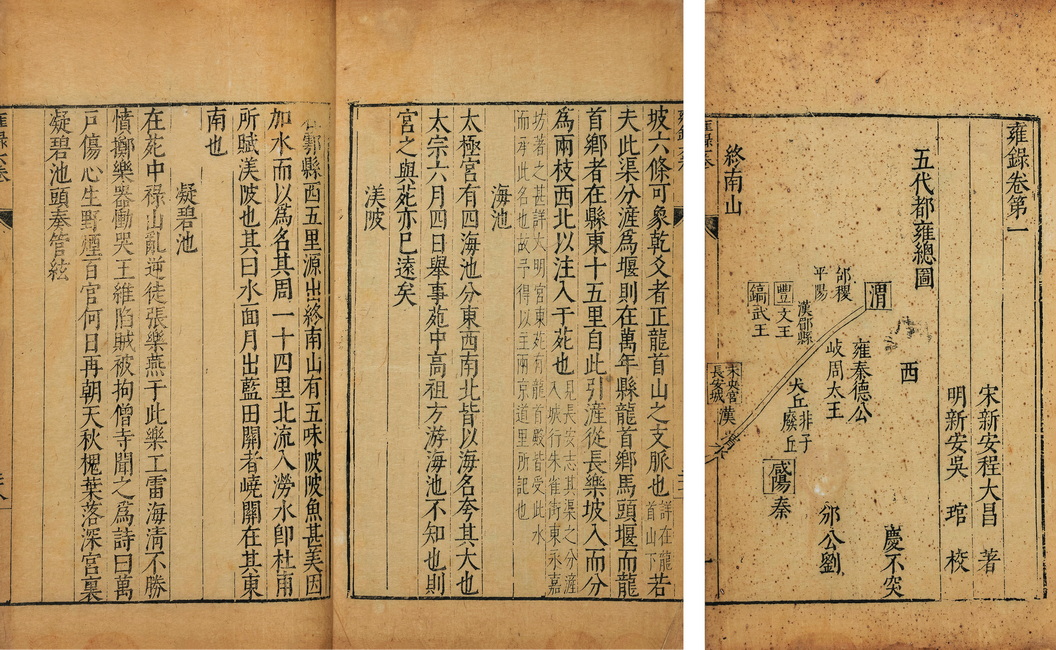 雍錄卷第一
宋新安程大昌 著
明新安吳 琯 校
五代都雍總圖
西
慶不突
渭
雍秦德公
岐周太王
邠公劉
邰稷
平陽
漢鄠縣
犬丘非子廢丘
豐文王
鎬武王
咸陽秦
未央宮
長安城
漢
終南山
坡六條可象乾爻者正龍首山之支脈也詳在龍首山下若
夫此渠分滻爲堰則在萬年縣龍首鄉馬頭堰而龍
首鄉者在縣東十五里自此引滻從長樂坡入而分
爲兩枝西北以注入于苑也見長安志其渠之分滻入城行朱雀街東永嘉
坊著之甚詳大明宮東苑有龍首殿皆受此水
而承此名也故予得以主兩京道里所記也
海池
太極宮有四海池分東西南北皆以海名夸其大也
太宗六月四日舉事苑中高祖方游海池不知也則
宮之與苑亦已遠矣
渼陂
在鄠縣西五里源出終南山有五味陂陂魚甚美因
加水而以爲名其周一十四里北流入澇水卽杜甫
所賦渼陂也其曰水面月出藍田關者嶢關在其東
南也
凝碧池
在苑中祿山亂逆徒張樂燕于此樂工雷海清不勝
憤擲樂器慟哭王維陷賊被拘僧寺聞之爲詩曰萬
戸傷心生野煙百官何日再朝天秋槐葉落深宮裏
凝碧池頭奏管絃